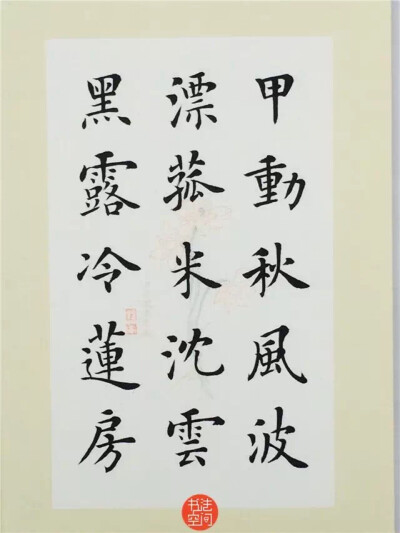 甲動秋風波
漂菰米沈雲
黑露冷蓮房
书法空间